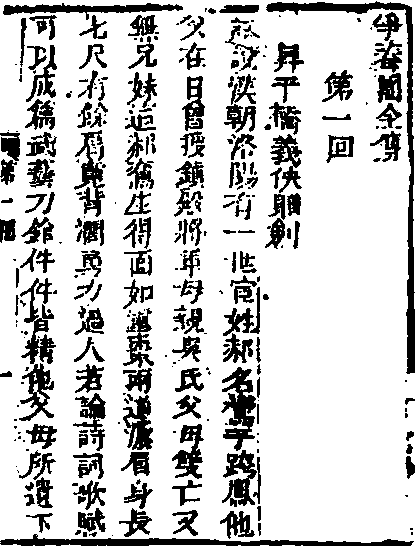 爭春園全傳
第一回
昇平橋義俠贈劍
話說漢朝洛陽有一世宦姓郝名鸞字跨鳳他
父在日曾授鎮殿將軍母親吳氏父母雙亡又
無兄妹這郝鸞生得面如重棗兩道濃眉身長
七尺有餘肩寬背濶勇力過人若論詩詞歌賦
可以成篇武藝刀鎗件件皆精他父母所遺下
第一回
一